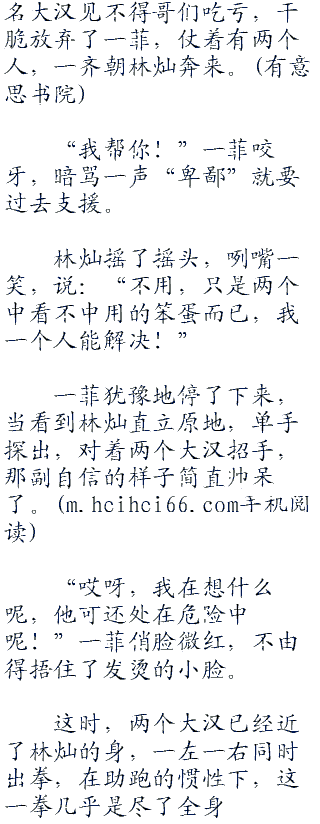 名大汉见不得哥们吃亏，干
脆放弃了一菲，仗着有两个
人，一齐朝林灿奔来。(有意
思书院)
“我帮你！”一菲咬
牙，暗骂一声“卑鄙”就要
过去支援。
林灿摇了摇头，咧嘴一
笑，说：“不用，只是两个
中看不中用的笨蛋而已，我
一个人能解决！”
一菲犹豫地停了下来，
当看到林灿直立原地，单手
探出，对着两个大汉招手，
那副自信的样子简直帅呆
了。(m.hcihci66.com手机阅
读)
“哎呀，我在想什么
呢，他可还处在危险中
呢！”一菲俏脸微红，不由
得捂住了发烫的小脸。
这时，两个大汉已经近
了林灿的身，一左一右同时
出拳，在助跑的惯性下，这
一拳几乎是尽了全身